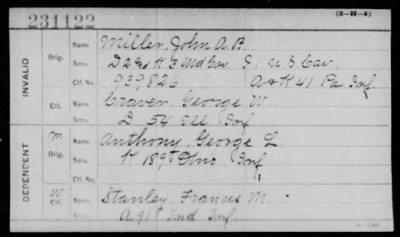 (3-H-4)
231122
INVALID
Orig. Name Miller, John A. B.
Serv. D 2nd & K 3 Md Cav. I 1 U.S. Cav.
Ctf. No. 999826 A & K 41 Pa Inf.
Ctf. Name Craver, George W.
Serv. D 54 Ill Inf
DEPENDENT
M. Orig. Name Anthony, George L
Serv. K 189 Ohio Inf
Ctf. No.
W. Ctf. Name Stanley, Francis M.
Serv. A 91st Ind Inf